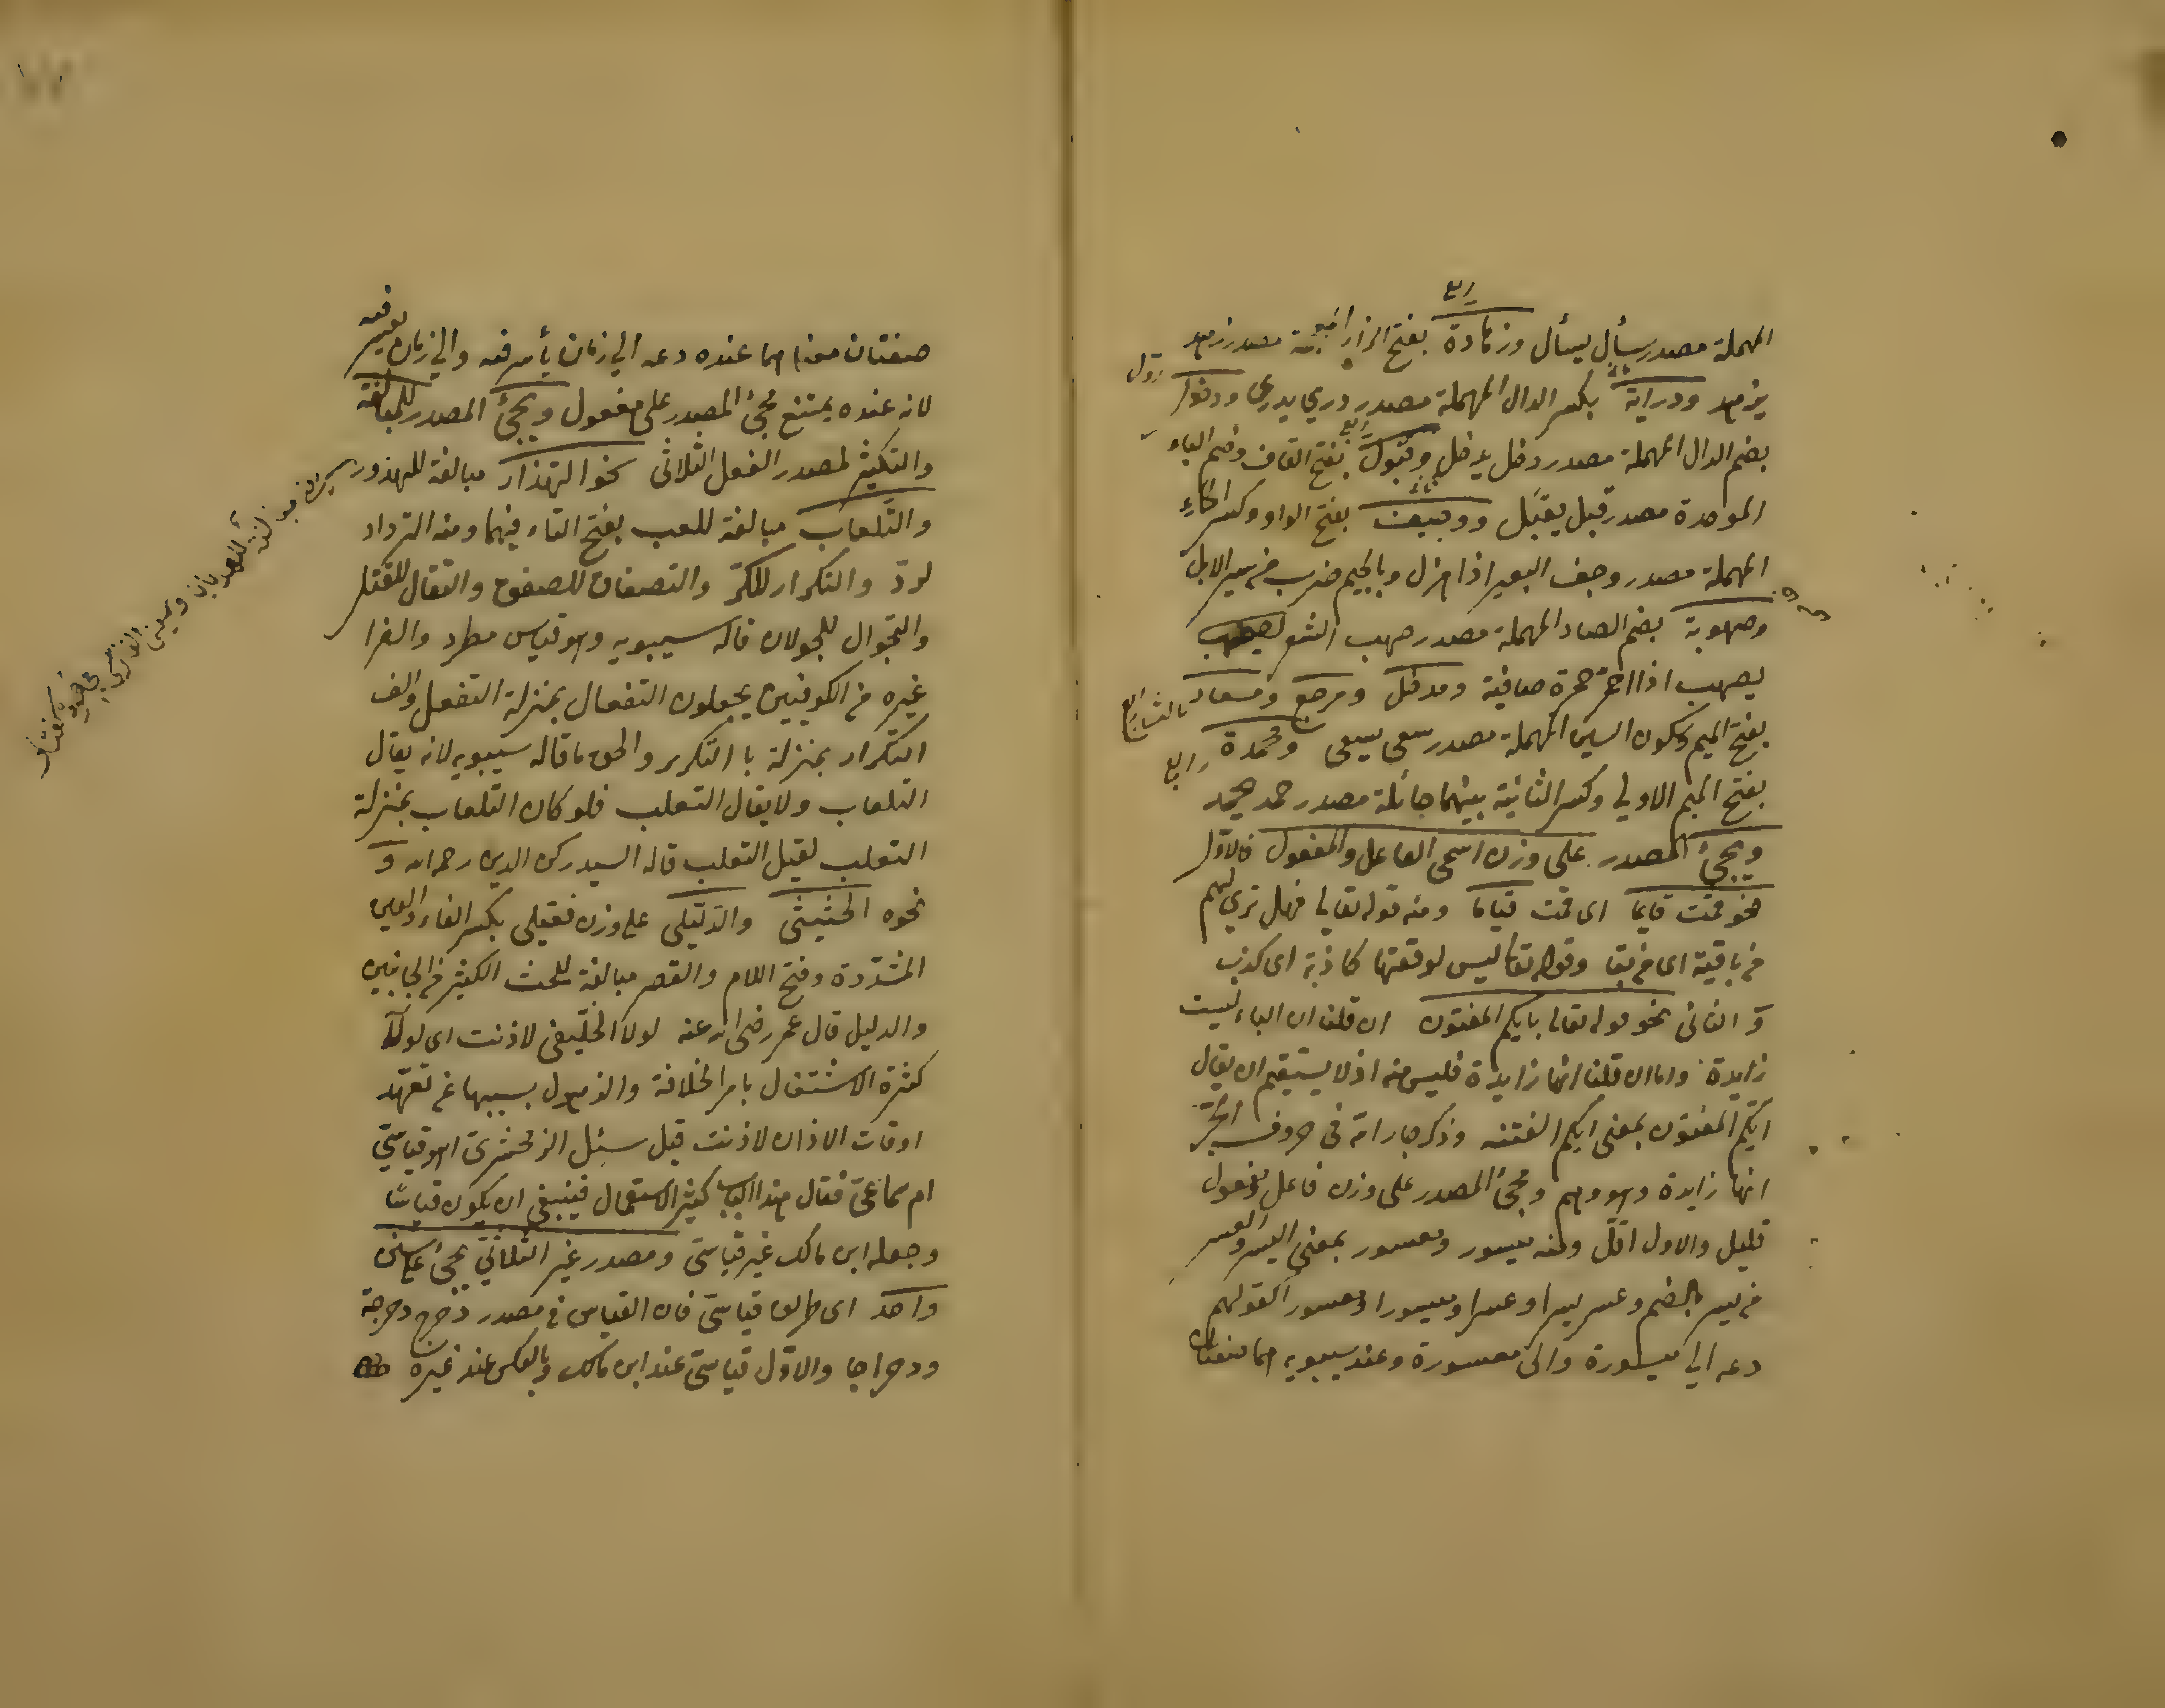 رابع
المهملة مصدر سأل يسأل وزهادة بفتح الزاء المعجمة مصدر زهد
يزهد ودراية بكسر الدال المهملة مصدر دري يدرى ودخول
بضم الدال المهملة مصدر دخل يدخل وقبول بفتح القاف وضم الباء
الموحدة مصدر قبل يقبل ووجيف بفتح الواو وكسر الحاء
المهملة مصدر وجف البعير اذا هزل وبالجيم ضرب من سير الابل
وصهوبة بضم الصاد المهملة مصدر صهب الشعر يصهب
يصهب اذا احمر حمرة صافية ومدخل ومرجع ومسعاة
بفتح الميم وسكون السين المهملة مصدر سعى يسعى ومحمدة
رابع
بفتح الميم الاولي وكسر الثانية بينهما حائلة مصدر حمد يحمد
ويجئ المصدر على وزن اسمى الفاعل والمفعول فالاول
نحو قمت قايما اى قمت قياما ومنه قوله تعالى فهل تري لهم
من باقية اى من بقا وقوله تعا ليس لوقعتها كاذبة اى كذب
و الثانى نحو قوله تعالى بايكم المفتون ان قلنا ان الباء ليست
زايدة واما ان قلنا انها زايدة فليس منه اذ لا يستقيم ان يقال
ايكم المفتون بمعنى ايكم الفتنه وذكر جار الله فى حروف الجر
انها زايدة وهو وهم ومجئ المصدر على وزن فاعل ومفعول
قليل والاول اقل ومنه ميسور ومعسور بمعنى اليسر والعسر
من يسر بالضم وعسر يسرا وعسرا وميسورا ومعسورا كقولهم
دعه الي ميسورة والى معسورة وعند سيبويه هما صفتان
صفتان معناهما عنده دعه الي زمان يأسر فيه والي زمان يعسر فيه
لانه عنده يمتنع مجئ المصدر على مفعول ويجئ المصدر للمبالغة
والتكثير لمصدر الفعل الثلاثى نحو التهذار مبالغة للهذر
والتلعاب مبالغة للعب بفتح التاء فيهما ومنه الترداد
لرد والتكرار للكر والتصفاق للصفق والتقتال للقتل
والتجوال للجولان قاله سيبويه وهو قياس مطرد والفرا
غيره من الكوفيين يجعلون التفعال بمنزلة التفعل والف
التكرار بمنزلة يا التكرير والحق ما قاله سيبويه لانه يقال
التلعاب ولا يقال التلعب فلو كان التلعاب بمنزلة
التلعب لقيل التلعب قاله السيد ركن الدين رحمه الله و
نحوه الحثيثى والدليلى على وزن فعيلى بكسر الفاء والعين
المشددة وفتح اللام والقصر مبالغة للحث الكثير من الجانبين
والدليل قال عمر رضى الله عنه لولا الخليفى لاذنت اى لولا
كثرة الاشتغال بامر الخلافة والذهول بسببها عن تعهد
اوقات الاذان لاذنت قيل سئل الزمخشرى اهو قياسي
ام سماعى فقال هذا الباب كثير الاستعمال فينبغى ان يكون قياسًا
وجعله ابن مالك غير قياسى ومصدر غير الثلاثي يجئ على سنن
واحد اى طريق قياسى فان القياس فى مصدر دحرج دحرجة
ودحراجا والاول قياسى عند ابن مالك وبالعكس عند غيره